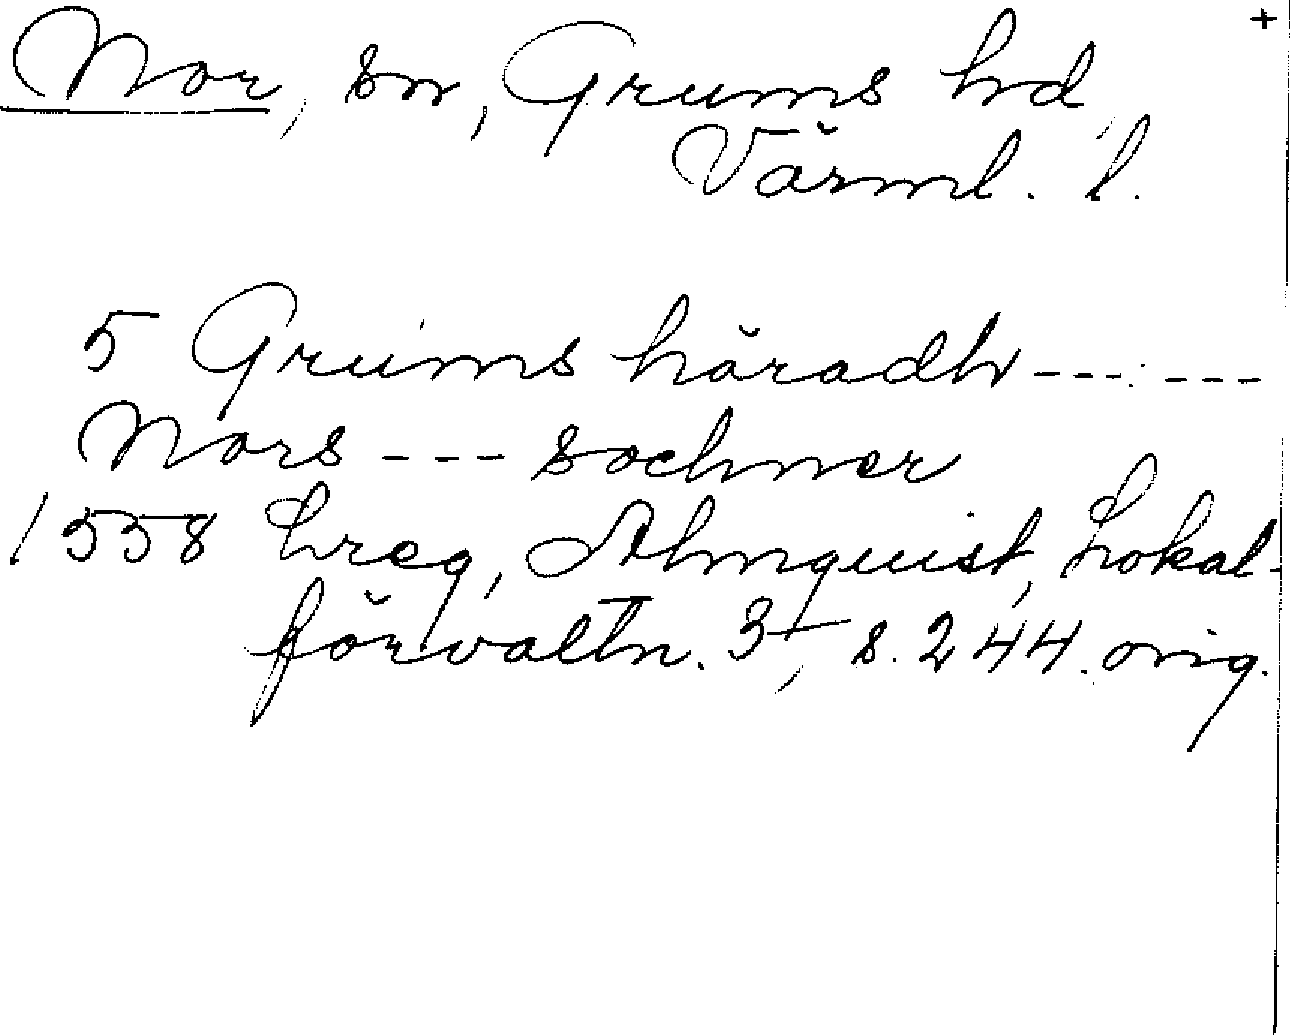 +
Nor, sn, Grums hd,
Värml. l.
5 Grums häradh --- ---
Nors --- sochner
1558 Lreg, Almquist, Lokal-
förvaltn. 3, s. 244. orig.